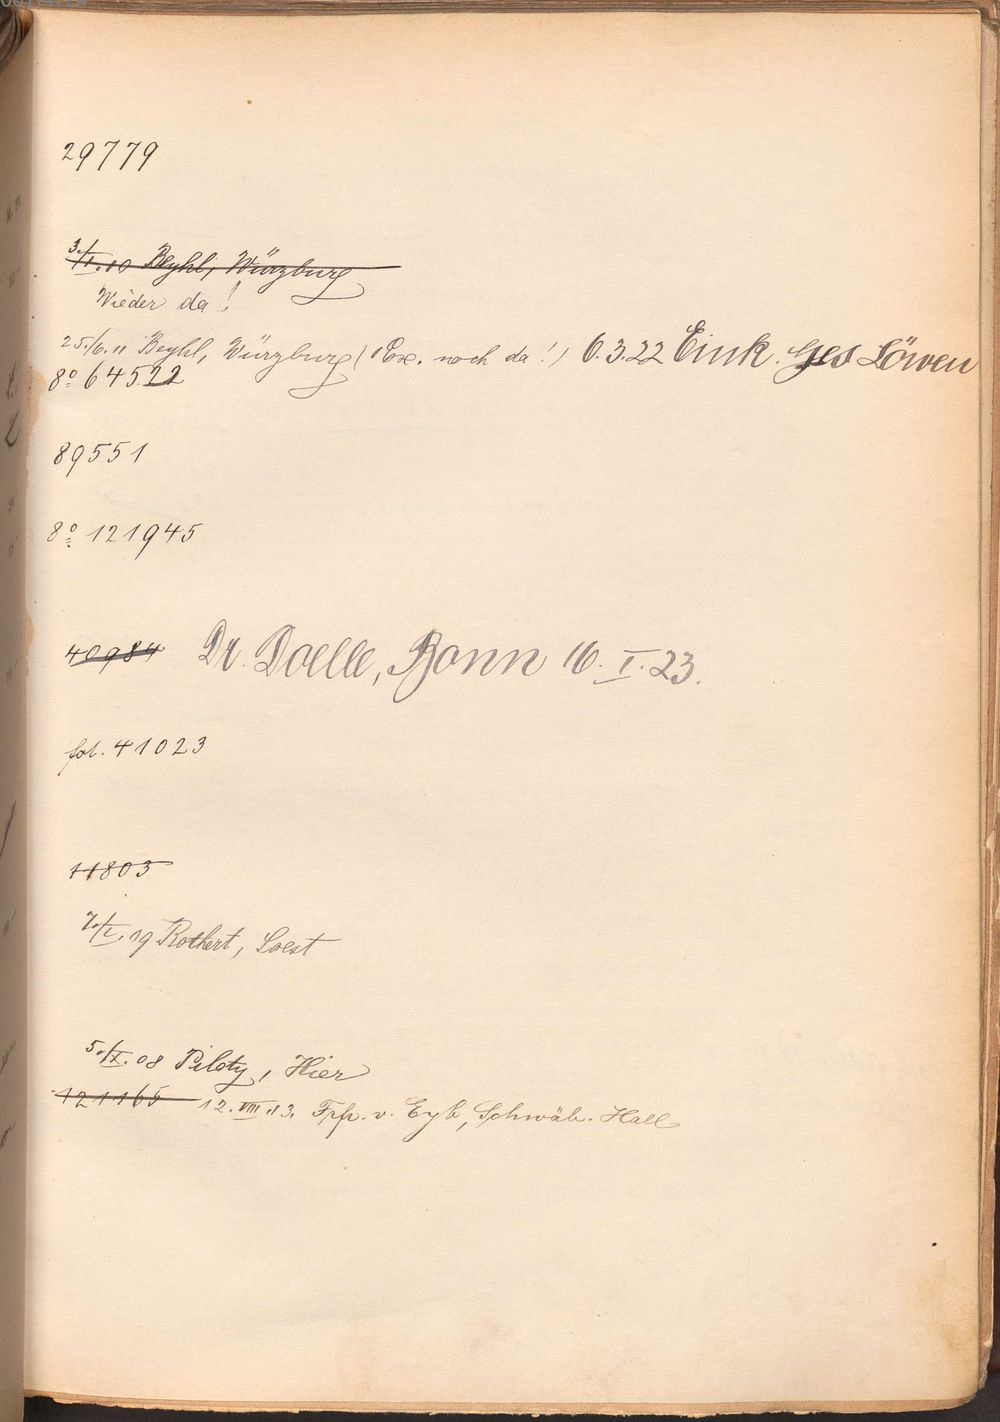 29779
3./I.10 Beyhl, Würzburg
Wieder da!
25./6.11 Beyhl, Würzburg (1 Ex. noch da!) 6.3.22 Eink. Ges Löwen
8º 64522
89551
8º 121945
40984 Dr. Doelle, Bonn 16.I.23.
fol. 41023
11803
7./I.09 Rothert, Soest
5./X.08 Piloty, Hier
121165 12.VIII.13. Frhr. v. Eyb, Schwäb. Hall